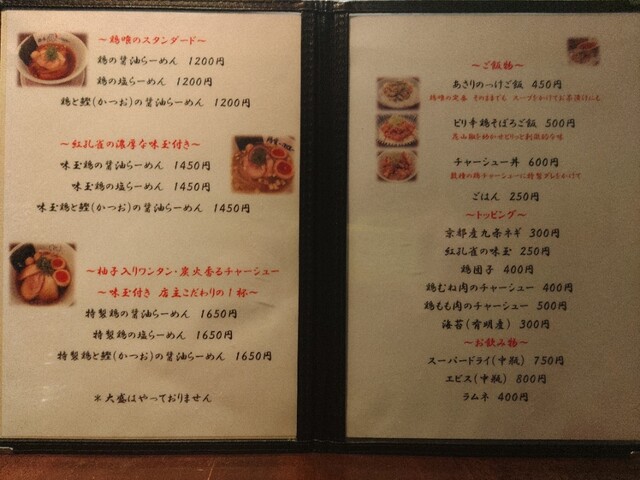 ～鶏喰のスタンダード～
鶏の醤油らーめん 1200円
鶏の塩らーめん 1200円
鶏と鰹(かつお)の醤油らーめん 1200円
～紅孔雀の濃厚な味玉付き～
味玉鶏の醤油らーめん 1450円
味玉鶏の塩らーめん 1450円
味玉鶏と鰹(かつお)の醤油らーめん 1450円
～柚子入りワンタン・炭火香るチャーシュー
～味玉付き 店主こだわりの1杯～
特製鶏の醤油らーめん 1650円
特製鶏の塩らーめん 1650円
特製鶏と鰹(かつお)の醤油らーめん 1650円
＊大盛はやっておりません
～ご飯物～
あさりのっけご飯 450円
鶏喰の定番 そのままでも スープをかけてお茶漬けにも
ピリ辛鶏そぼろご飯 500円
チャーシュー丼 600円
数種の鶏チャーシューに特製ダレをかけて
ごはん 250円
～トッピング～
京都産九条ネギ 300円
紅孔雀の味玉 250円
鶏団子 400円
鶏むね肉のチャーシュー 400円
鶏もも肉のチャーシュー 500円
海苔(有明産) 300円
～お飲み物～
スーパードライ(中瓶) 750円
エビス(中瓶) 800円
ラムネ 400円